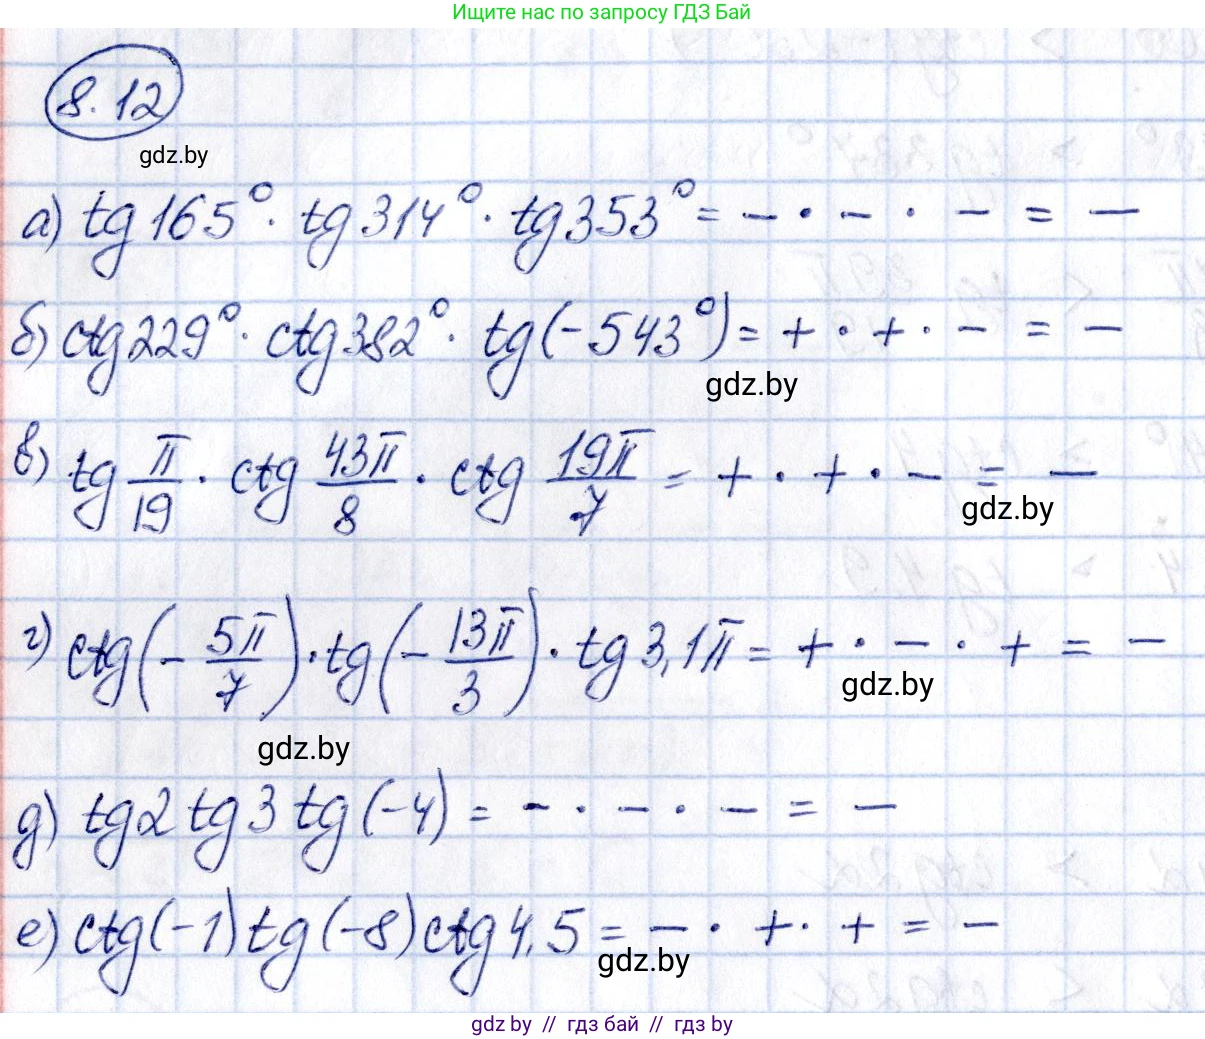 Ищите нас по запросу ГДЗ Бай
8.12
gdz.by
а) tg 165° · tg 314° · tg 353° = - · - · - = -
б) ctg 229° · ctg 382° · tg (-543°) = + · + · - = -
gdz.by
в) tg π/19 · ctg 43π/8 · ctg 19π/7 = + · + · - = -
gdz.by
г) ctg (-5π/7) · tg (-13π/3) · tg 3,1π = + · - · + = -
gdz.by
gdz.by
д) tg 2 tg 3 tg (-4) = - · - · - = -
е) ctg (-1) tg (-8) ctg 4,5 = - · + · + = -
gdz.by
gdz.by // гдз бай // гдз by